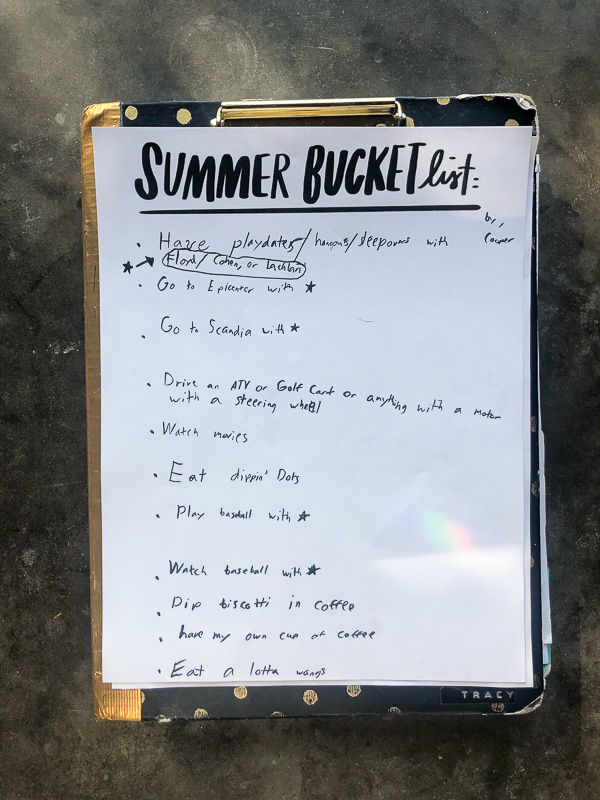 SUMMER BUCKET list:
by, Cooper
• Have playdates/hangouts/sleepovers with
★ → Floyd/ Cohen, or Lachlan
• Go to Epicenter with ★
• Go to Scandia with ★
• Drive an ATV or Golf Cart or anything with a motor
with a steering wheel
• Watch movies
• Eat dippin' Dots
• Play baseball with ★
• Watch baseball with ★
• Dip biscotti in coffee
• have my own cup of coffee
• Eat a lotta wangs
TRACY